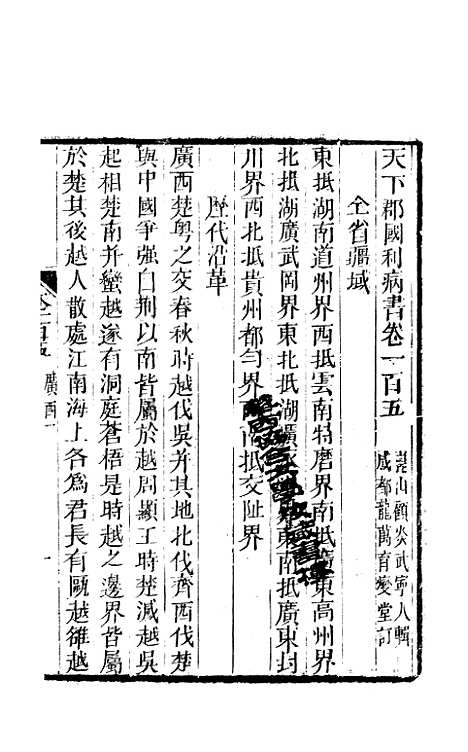 天下郡國利病書卷一百五
崑山顧炎武寧人輯
成都龍萬育燮堂訂
全省疆域
東抵湖南道州界西抵雲南特磨界南抵廣東高州界
北抵湖廣武岡界東北抵湖廣永州界東南抵廣東封
川界西北抵貴州都勻界西南抵交阯界
歷代沿革
廣西楚粤之交春秋時越伐吳并其地北伐齊西伐楚
與中國爭强自荆以南皆屬於越周顯王時楚滅越吳
起相楚南并蠻越遂有洞庭蒼梧是時越之邊界皆屬
於楚其後越人散處江南海上各爲君長有甌越雒越
卷一百五
廣西一
一